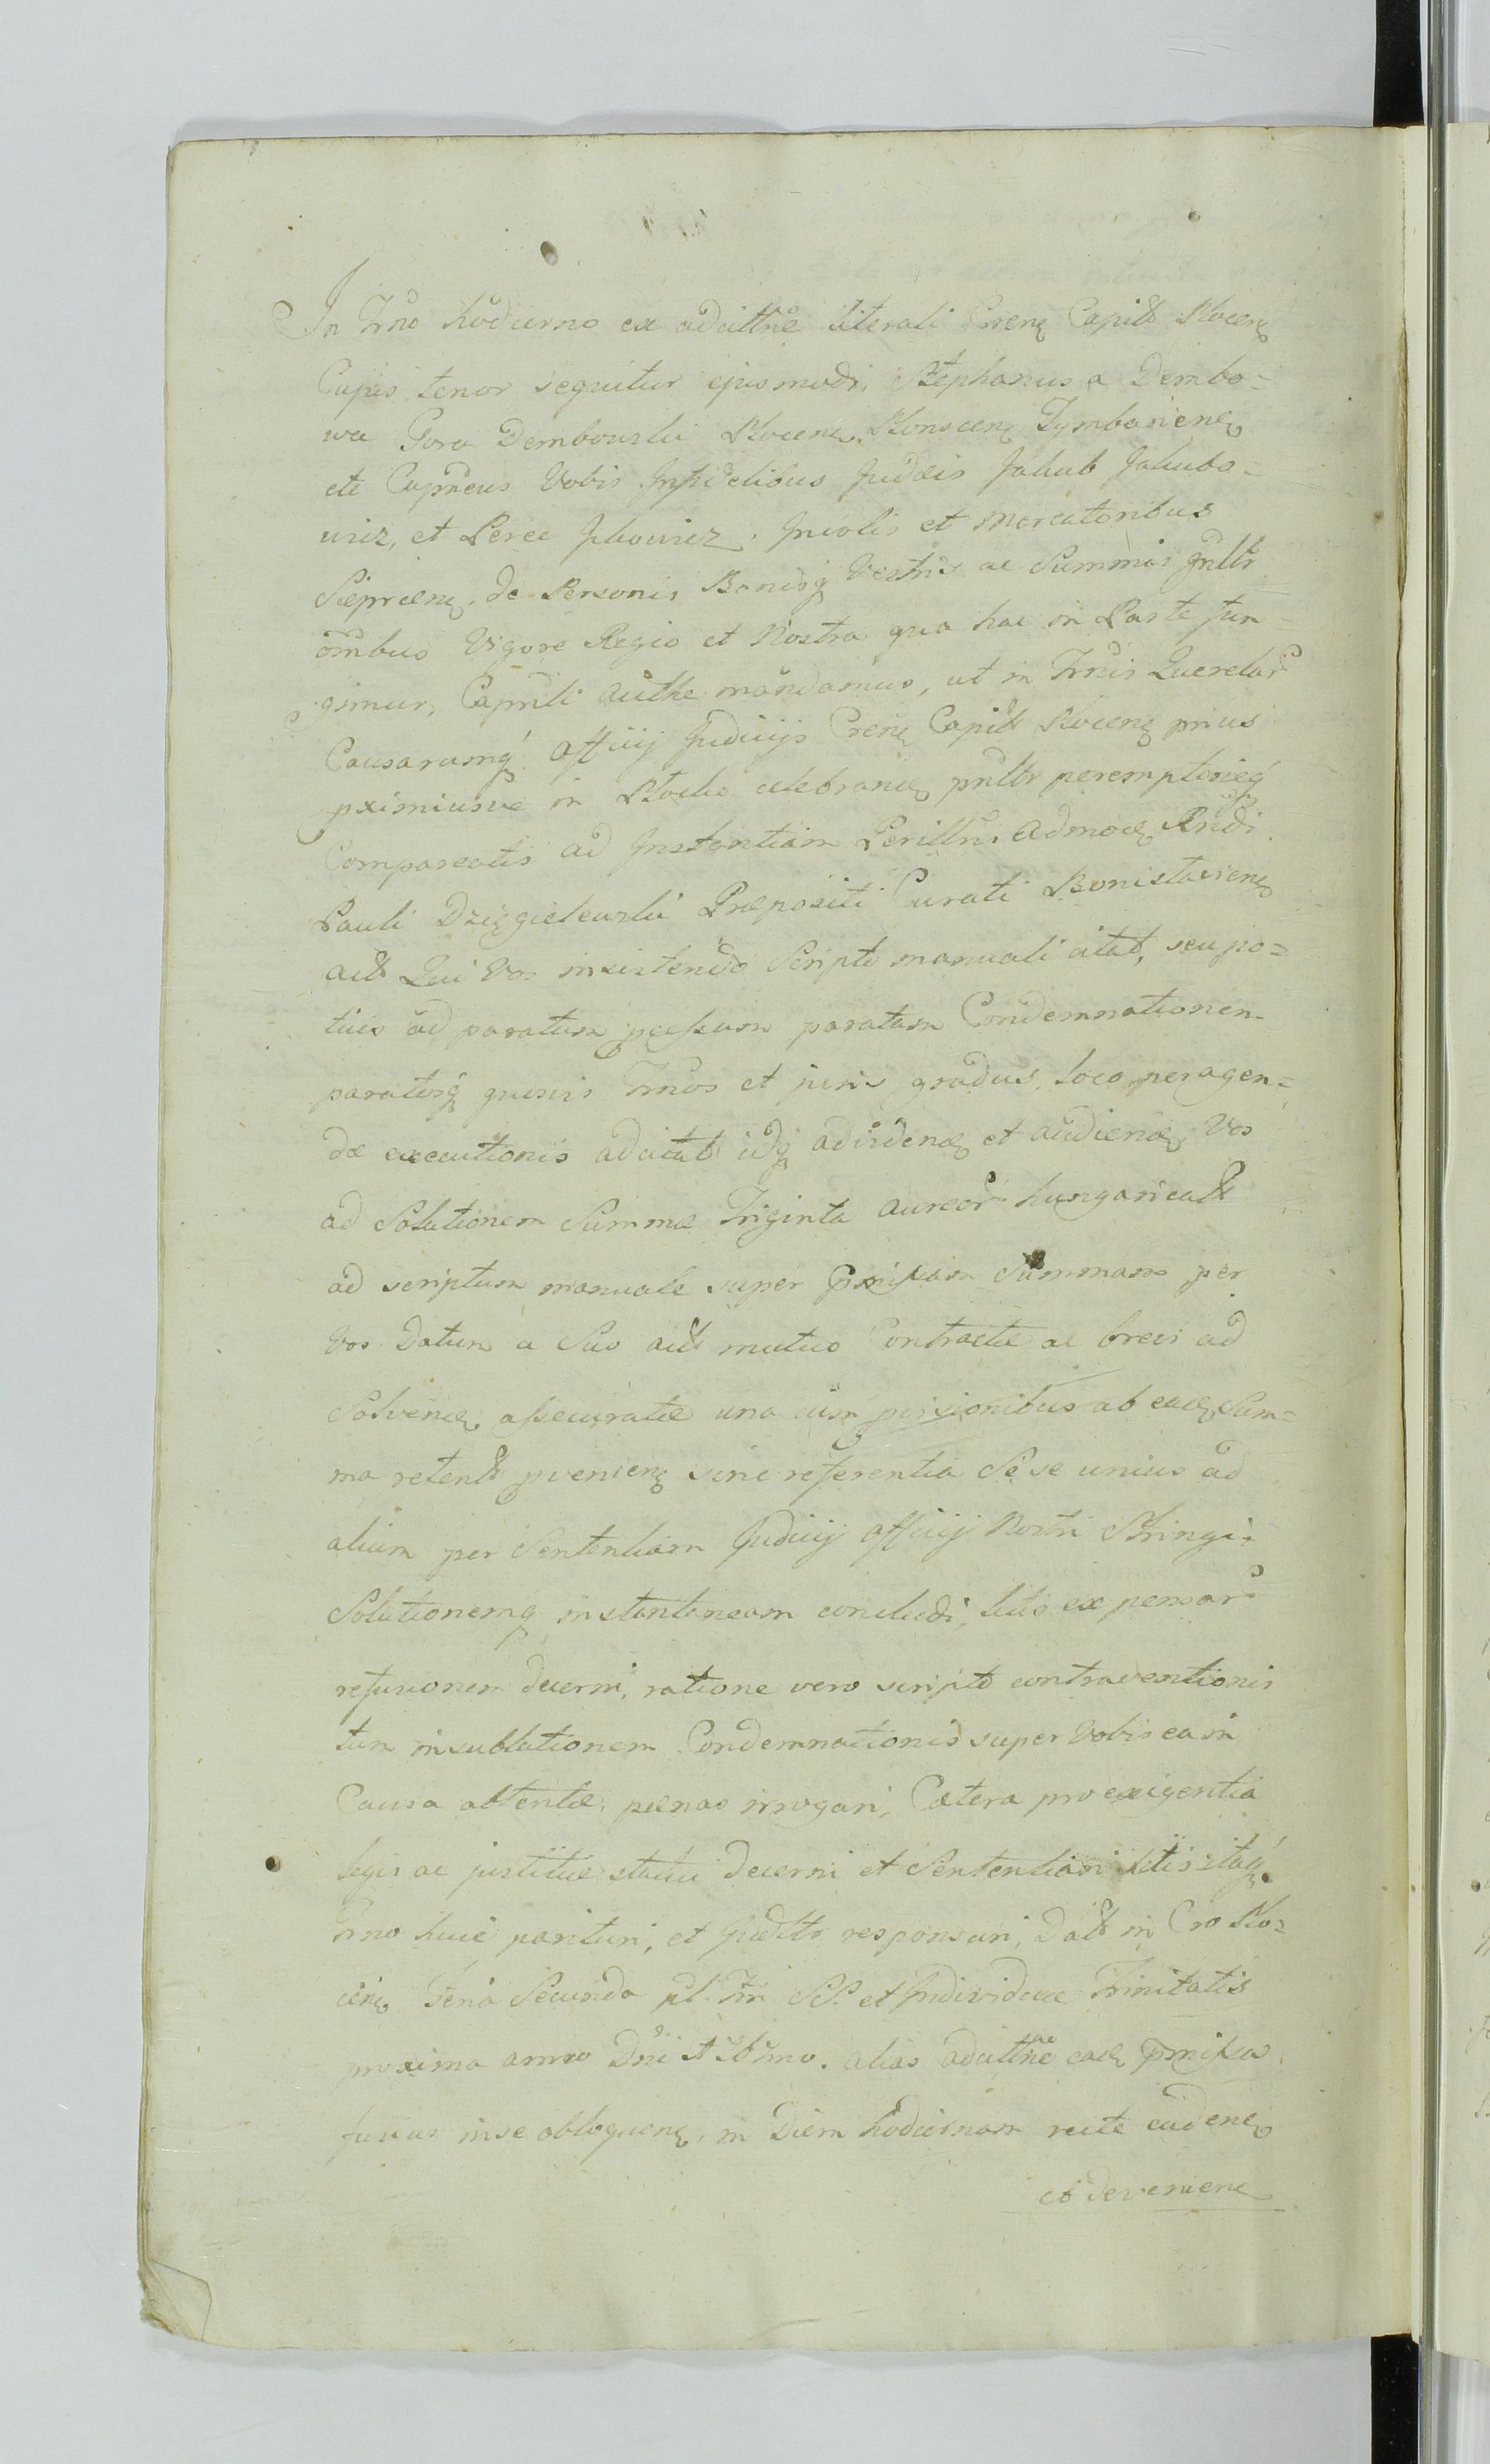 In Trno hodierno ex adcittne literali Crens Capitt Plocens
Cujus tenor sequitur ejusmodi, Stephanus a Dembo=
wa Gora Dembowski Plocens. Plonscens Tymbariens
etc Capneus Vobis Infidelibus Judæis Jakub Jakubo=
wicz, et Perec Jckowicz. Incolis et Mercatoribus
Sieprcens. de Personis Bonisq Vestris ac Summis gnltr
omnbus Vigore Regio et Nostra qua hac in Parte fun=
gimur, Capnli autthe mandamus, ut in Trnis Querelar
Causarumq Officij Judicijs Crens Capitt Plocens prius
pximiusve in Plocko celebrand pnltr peremptorieq
Compareatis ad Instantiam Perillris Admod Rndi
Pauli Dzięgielewski Præpositi Curati Bonislaviens
actt Qui Vos insistendo Scripto manuali citat, seu po=
tius ad paratum pcessum paratam Condemnationem
paratosq quosvis Trnos et juris gradus, loco peragen=
dæ executionis adcitat idq advidend et audiend, Vos
ad Solutionem Summæ Triginta aureor hungaricall
ad scriptum manuale super pmissam Summam per
Vos Datum a Suo actt mutuo Contractæ ac brevi ad
Solvend. assecuratæ una cum provisionibus ab ead Sum=
ma retent pveniens sine referentia Se se unius ad
alium per Sententiam Judicij Officij Nostri Stringi.
Solutionemq instantaneam concludi, litis expensar
refusionem decerni, ratione vero scripto contraventionis
tum in sublationem Condemnationis super Vobis ea in
Causa obtentæ, pænas irrogari, Cætera pro exigentia
legis ac justitiæ statui decerni et Sententiari sitis itaq
Trno huic parituri, et Juditr responsuri, Datt in Cro Plo=
cens Feria Secunda pt. Frn SS. et Individuæ Trinitatis
proxima anno Dni 1767mo. alias adcittne ead pmissa
fusius in se obloquens, in Diem hodiernam recte cadens
et deveniens